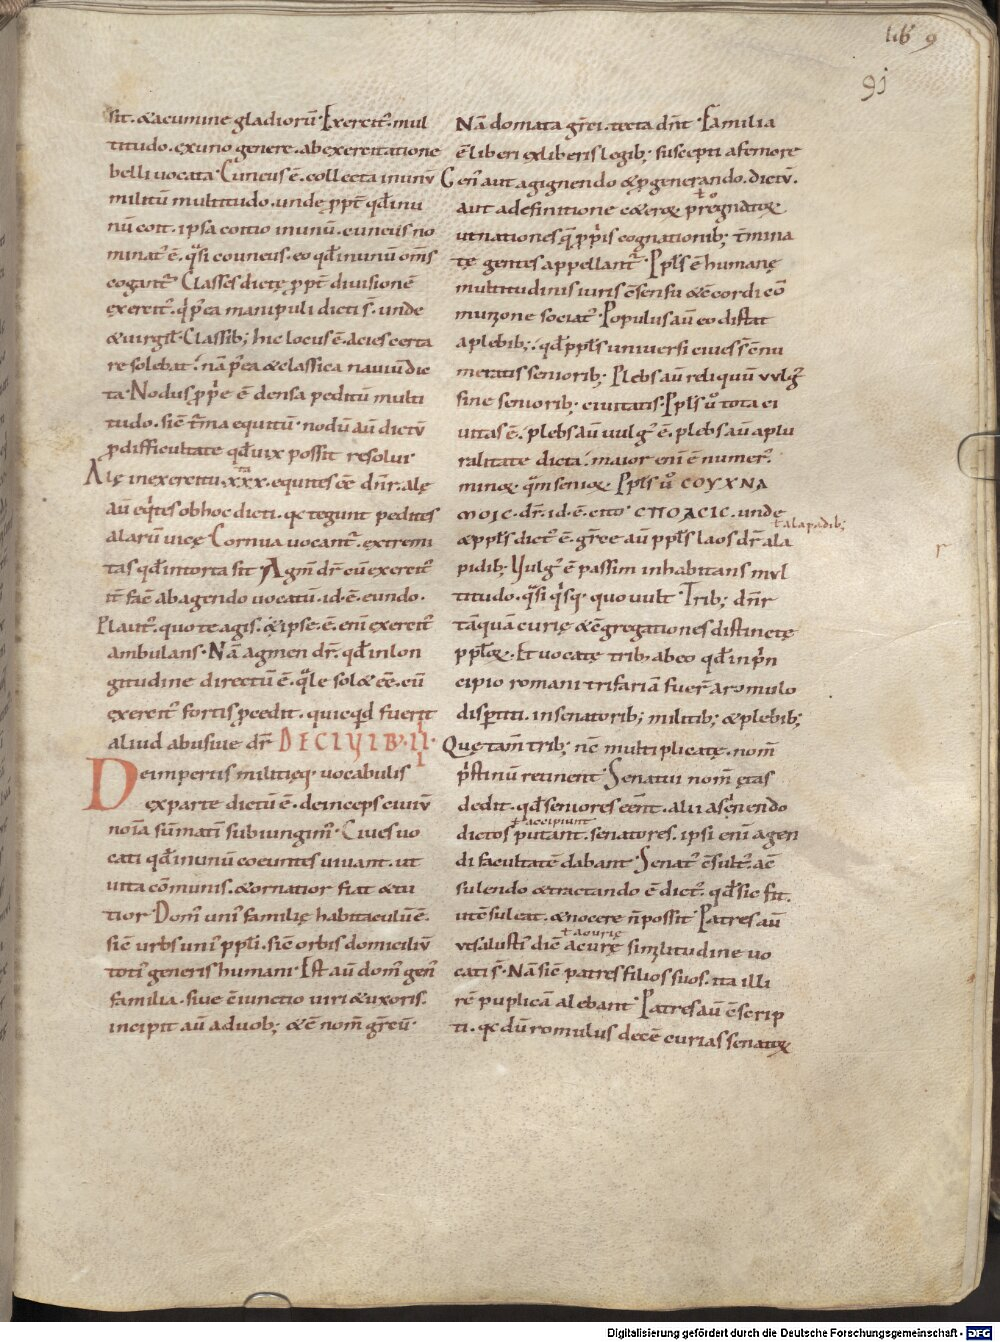 lib 9
91
sit. & acumine gladiorū. Exercit᷒. mul
titudo. ex uno genere. ab exercitatione
belli uocata. Cuneus ē. collecta in unū
militū multitudo. unde ꝓpt̄ qđ in u
nū coit. ipsa coitio in unū. cuneus no
minat᷒ ē. q̄si couneus. eo qđ in unū om̄s
cogant᷒. Classes dictę ꝓpt̄ diuisionē
exercit᷒. q' p'ea manipuli dicti s̄. unde
& uirgil᷒. Classib; hic locus ē. acies certa
re solebat. nā p'ea & classica nauiū dic
ta. Nodus ꝓp'e ē densa peditū multi
tudo. sic̄ t̄ma equitū. nodū aū dictū
ꝓ difficultate qđ uix possit resolui.
Alę in exercitu. xxx. equites ēē dn̄r. alę
aū eq'tes ob hoc dicti. qc tegunt pedites
alarū uice. Cornua uocant᷒. extremi
tas qđ intorta sit. Agm̄ dr̄. cū exercit᷒
it̄ fac̄. ab agendo uocatū. id. ē. eundo.
Plaut᷒. quo te agis. & ipse. ē. eni exercit᷒
ambulans. Nā agmen dr̄. qđ in lon
gitudine directū ē. q̄le sol& ēē. cū
exercit᷒ portis ꝓcedit. quicq̄d fuerit
aliud abusiue dr̄. DE CIVIB; II.
De imperiis militięq. uocabulis
ex parte dictū ē. deinceps ciuiū
noīa sūmatī subiungim᷒. Ciues uo
cati qđ in unū coeuntes uiuant. ut
uita cōmunis. & ornatior fiat & tu
tior. Dom᷒ uni᷒ familię habitaculū ē.
sic̄ urbs uni᷒ ppl̄i. sic̄ orbis domiciliū
toti᷒ generis humani. Est aū dom᷒ gen᷒
familia. siue c̄iunctio uiri & uxoris.
incipit aū a duob; & ē nom̄ grēū.
Nā domata grēi. tecta dn̄t. Familia
ē liberi ex liberis legib; suscepti a femore
Gen᷒ aut a gignendo & ꝓgenerando. dictū.
aut a definitione
ut nationes q̄ ꝓp'is cognationib; t̄mina
tę gentes appellant᷒. Ppl̄s ē humanę
multitudinis iuris c̄sensu & c̄cordi cō
munione sociat᷒. Populus aū eo distat
a plebib; qđ ppl̄s uniuersi ciues s̄ c̄nu
meratis seniorib; Plebs aū reliquū uulg᷒
sine seniorib; ciuitatis. Ppl̄s ū tota ci
uitas ē. plebs aū uulg᷒ ē. plebs aū a plu
ralitate dicta. maior enī ē numer᷒.
minoꝝ q̄m senioꝝ. Ppl̄s ū COYXNA
MOIC. dr̄. id. ē. CΠOACIC. unde
ł alapadib;
& ppl̄s dict᷒ ē. grēe aū ppl̄s laos dr̄ a la
pidib; Uulg᷒ ē passim inhabitans mul
titudo. q̄si q'sq; quo uult. Trib; dn̄r
tāquā curię & c̄gregationes distinctę
ppl̄oꝝ. Et uocatę trib; ab eo qđ in p'n
cipio romani trifariā fuer̄ a romulo
disptiti. in senatorib; militib; & plebib;
Quę tam̄ trib; nc̄ multiplicatę. nom̄
p'stinū retinent. Senatui nom̄ ętas
dedit. qđ seniores eēnt. alii a sinendo
ł accipiunt
dictos putant. senatores. ipsi enī agen
di facultatē dabant. Senat᷒ c̄sult᷒. a c̄
sulendo & tractando ē dict᷒. qđ sic fit.
ut c̄suleat. & nocere n̄ possit. Patres aū
ł a curię
ut salusti᷒ dic̄ a curę similitudine uo
cati s̄. Nā sic̄ patres filios suos. ita illi
rē puplicā alebant. Patres aū c̄scrip
ti. qc dū romulus decē curias senatoꝝ
r
Digitalisierung gefördert durch die Deutsche Forschungsgemeinschaft - DFG